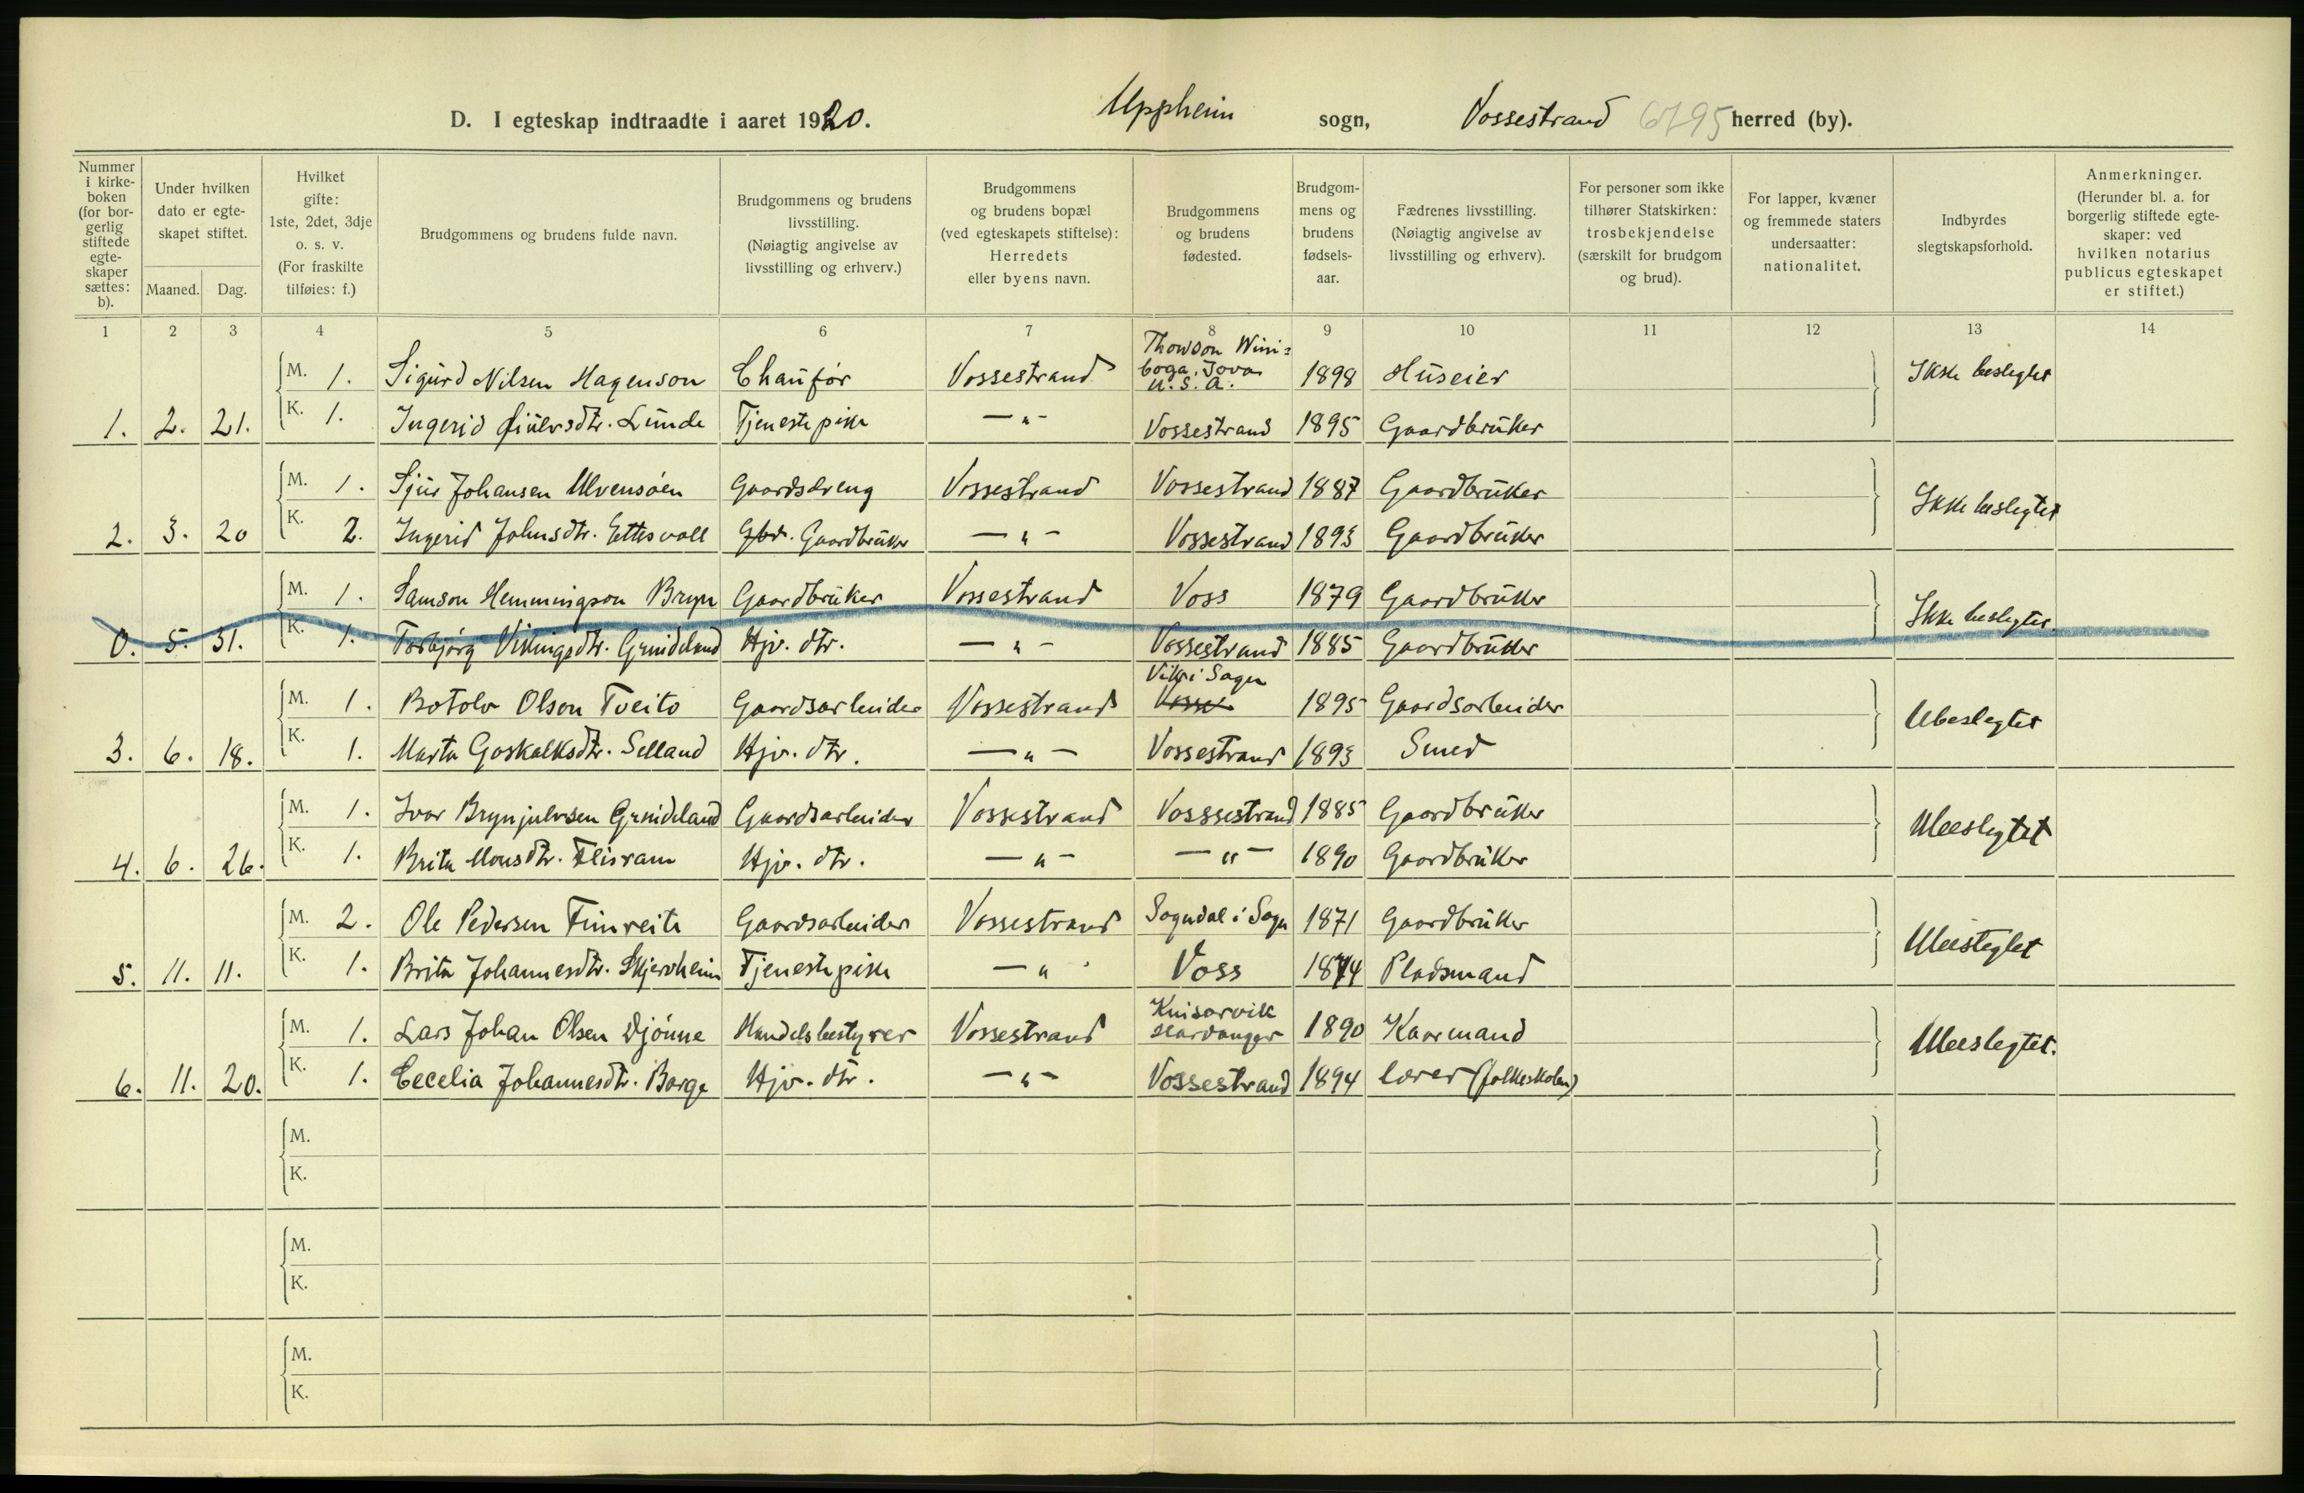 D. I egteskap indtraadte i aaret 1920. Uppheim sogn, Vossestrand 6795 herred (by).
Nummer i kirke- boken (for bor- gerlig stiftede egte- skaper sættes: b).
Under hvilken dato er egte- skapet stiftet.
Maaned. Dag.
Hvilket gifte: 1ste, 2det, 3dje o. s. v. (For fraskilte tilføies: f.)
Brudgommens og brudens fulde navn.
Brudgommens og brudens livsstilling. (Nøiagtig angivelse av livsstilling og erhverv.)
Brudgommens og brudens bopæl (ved egteskapets stiftelse): Herredets eller byens navn.
Brudgommens og brudens fødested.
Brudgom- mens og brudens fødsels- aar.
Fædrenes livsstilling. (Nøiagtig angivelse av livsstilling og erhverv).
For personer som ikke tilhører Statskirken: trosbekjendelse (særskilt for brudgom og brud).
For lapper, kvæner og fremmede staters undersaatter: nationalitet.
Indbyrdes slegtskapsforhold.
Anmerkninger. (Herunder bl. a. for borgerlig stiftede egte- skaper: ved hvilken notarius publicus egteskapet er stiftet.)
1 2 3 4 5 6 7 8 9 10 11 12 13 14
M. 1. Sigurd Nilsen Hagenson Chaufør Vossestrand Thowson Wini= boga, Jova U.S.A. 1898 Huseier Ikke beslegtet
1. 2. 21. K. 1. Ingerid Lunde Tjenestepike —"— Vossestrand 1895 Gaardbruker
M. 1. Sjur Johansen Ulvensøen Gaardsdreng Vossestrand Vossestrand 1887 Gaardbruker Ikke beslegtet
2. 3. 20 K. 2. Ingerid Johnsdtr. Ettesvoll Gbr. Gaardbruker —"— Vossestrand 1893 Gaardbruker
M. 1. Samson Hemmingson Bryn Gaardbruker Vossestrand Voss 1879 Gaardbruker Ikke beslegtet.
0. 5. 31. K. 1. Torbjørg Vikingsdtr. Grindeland Hjv. dtr. —"— Vossestrand 1885 Gaardbruker
M. 1. Botolv Olson Tveito Gaardsarbeider Vossestrand Vik i Sogn Vosse 1895 Gaardsarbeider Ubeslegtet
3. 6. 18. K. 1. Marta Goskalksdtr. Selland Hjv. dtr. —"— Vossestrand 1893 Smed
M. 1. Ivar Brynjulvsen Grindeland Gaardsarbeider Vossestrand Vosssestrand 1885 Gaardbruker Ubeslegtet
4. 6. 26. K. 1. Brita Monsdtr. Flisram Hjv. dtr. —"— —"— 1890 Gaardbruker
M. 2. Ole Pedersen Fimreite Gaardsarbeider Vossestrand Sogndal i Sogn 1871 Gaardbruker Ubesleglet
5. 11. 11. K. 1. Brita Johannesdtr. Skjervheim Tjenestepike —" Voss 1874 Pladsmand
M. 1. Lars Johan Olsen Djønne Handelsbestyrer Vossestrand Kinsarvik Hardanger 1890 Kaarmand Ubeslegtet.
6. 11. 20. K. 1. Cecelia Johannesdtr. Borge Hjv. dtr. —"— Vossestrand 1894 Lærer (folkeskolen)
M.
K.
M.
K.
M.
K.